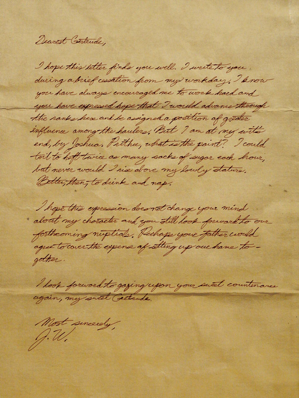 Dearest Gertrude,
I hope this letter finds you well. I write to you
during a brief cessation from my workday. I know
you have always encouraged me to work hard and
you have expressed hope that I would advance through
the ranks here and be assigned a position of greater
influence among the haulers. But I am at my wits
end, by Joshua. Prithee, what is the point? I could
toil to loft twice as many sacks of sugar each hour,
but never would I rise above my lowly station.
Better, then, to drink and nap.
I hope this expression does not change your mind
about my character and you still look forward to our
forthcoming nuptials. Perhaps your father would
agree to cover the expense of setting up our home to-
gether.
I look forward to gazing upon your sweet countenance
again, my sweet Gertrude.
Most sincerely,
J.W.